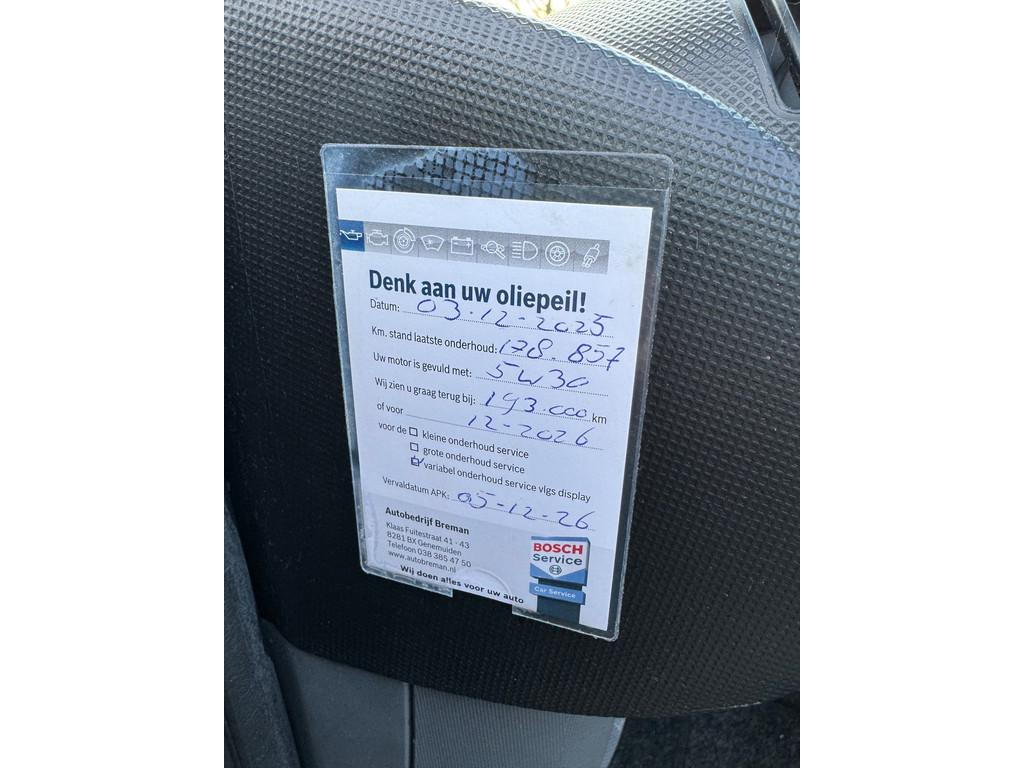 Denk aan uw oliepeil!
Datum: 03-12-2025
Km. stand laatste onderhoud: 178.857
Uw motor is gevuld met: 5W30
Wij zien u graag terug bij: 193.000 km
of voor 12-2026
voor de kleine onderhoud service
grote onderhoud service
variabel onderhoud service vlgs display
Vervaldatum APK: 05-12-26
Autobedrijf Breman
Klaas Fuitestraat 41 - 43
8281 BX Genemuiden
Telefoon 038 385 47 50
www.autobreman.nl
Wij doen alles voor uw auto
BOSCH
Service
Car Service